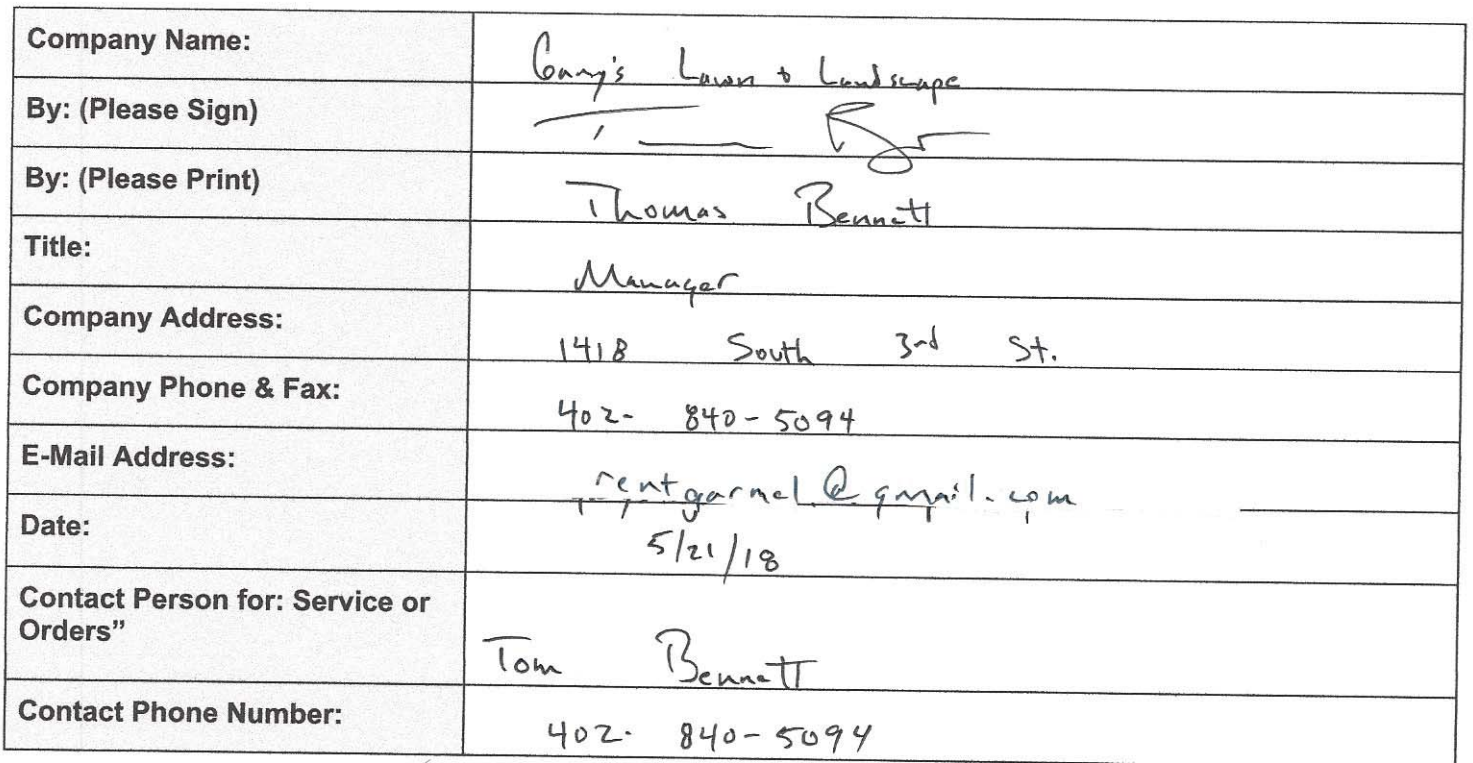 Company Name: Gary's Lawn + Landscape
By: (Please Sign)
By: (Please Print) Thomas Bennett
Title: Manager
Company Address: 1418 South 3rd St.
Company Phone & Fax: 402- 840-5094
E-Mail Address: @gmail.com
Date: 5/21/18
Contact Person for: Service or
Orders” Tom Bennett
Contact Phone Number: 402- 840-5094